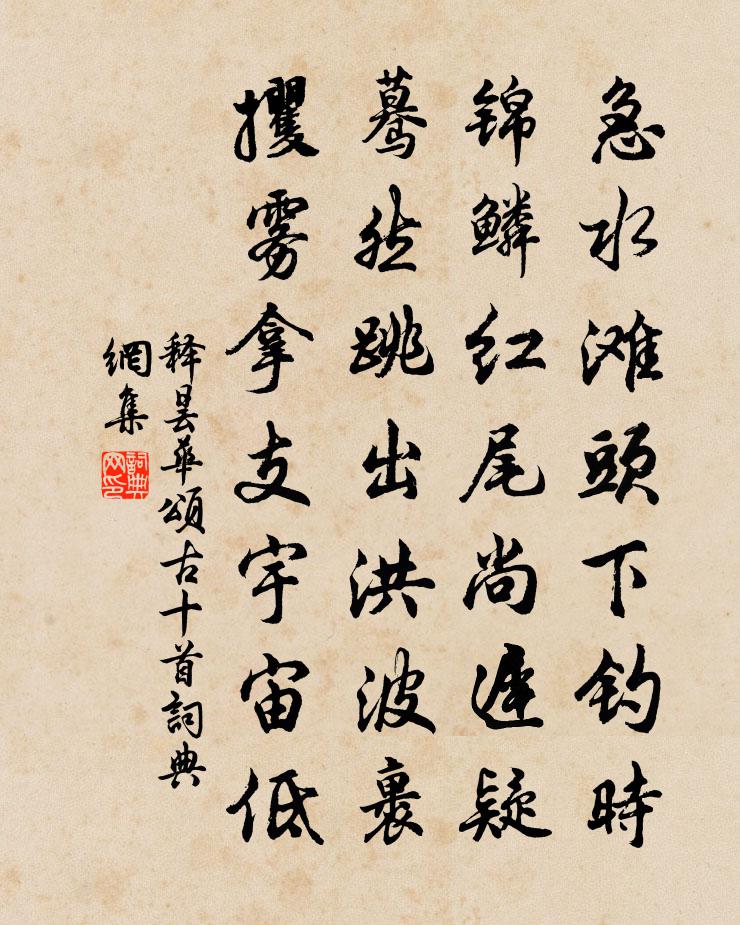 急水滩頭下钓時
锦鳞红尾尚遲疑
蓦然跳出洪波裏
攫雾拿支宇宙低
释昙華頌古十首詞典
網集
詞典
网印